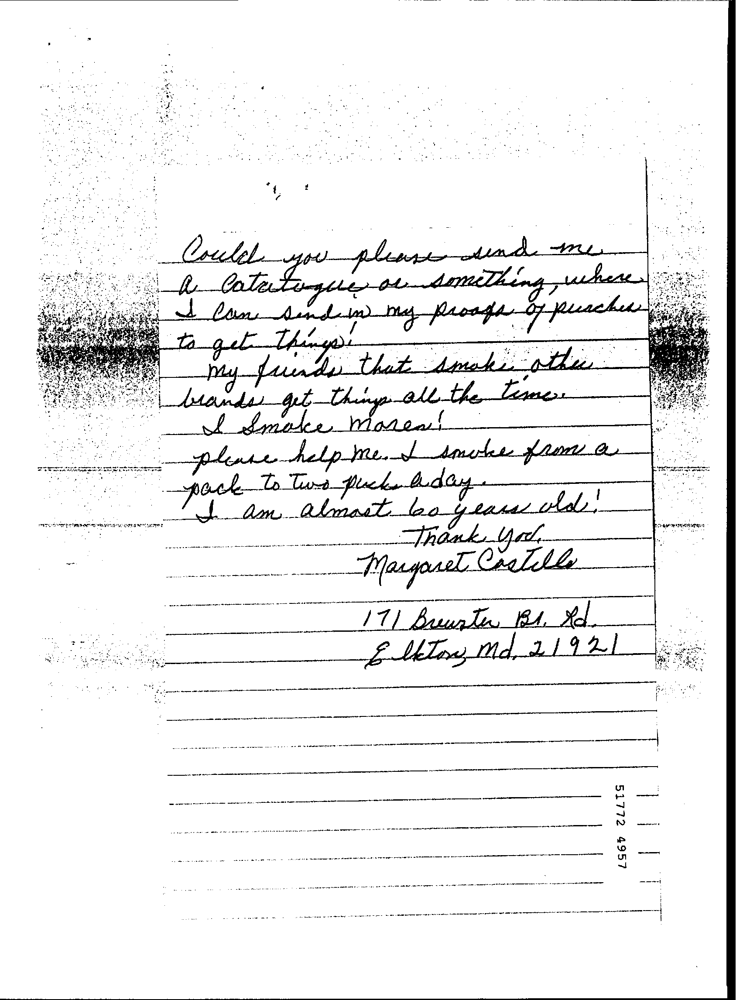 Could you please send me
a Catatogue or something, where
I can send in my proofs of purches
to get things!
my friends that smoke other
brands get things all the time.
I Smoke Mores!
please help me. I smoke from a
pack to two packs a day.
I am almost 60 years old!
Thank you,
Margaret Costello
171 Brewster Bd. Rd.
Elkton, Md. 21921
51772 4957